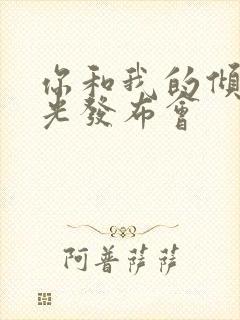 你和我的傾
光發布會
阿普薩薩